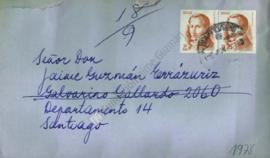 18/9
Señor Don
Jaime Guzmán Errázuriz
Galvarino Gallardo 2060
Departamento 14
Santiago
1976